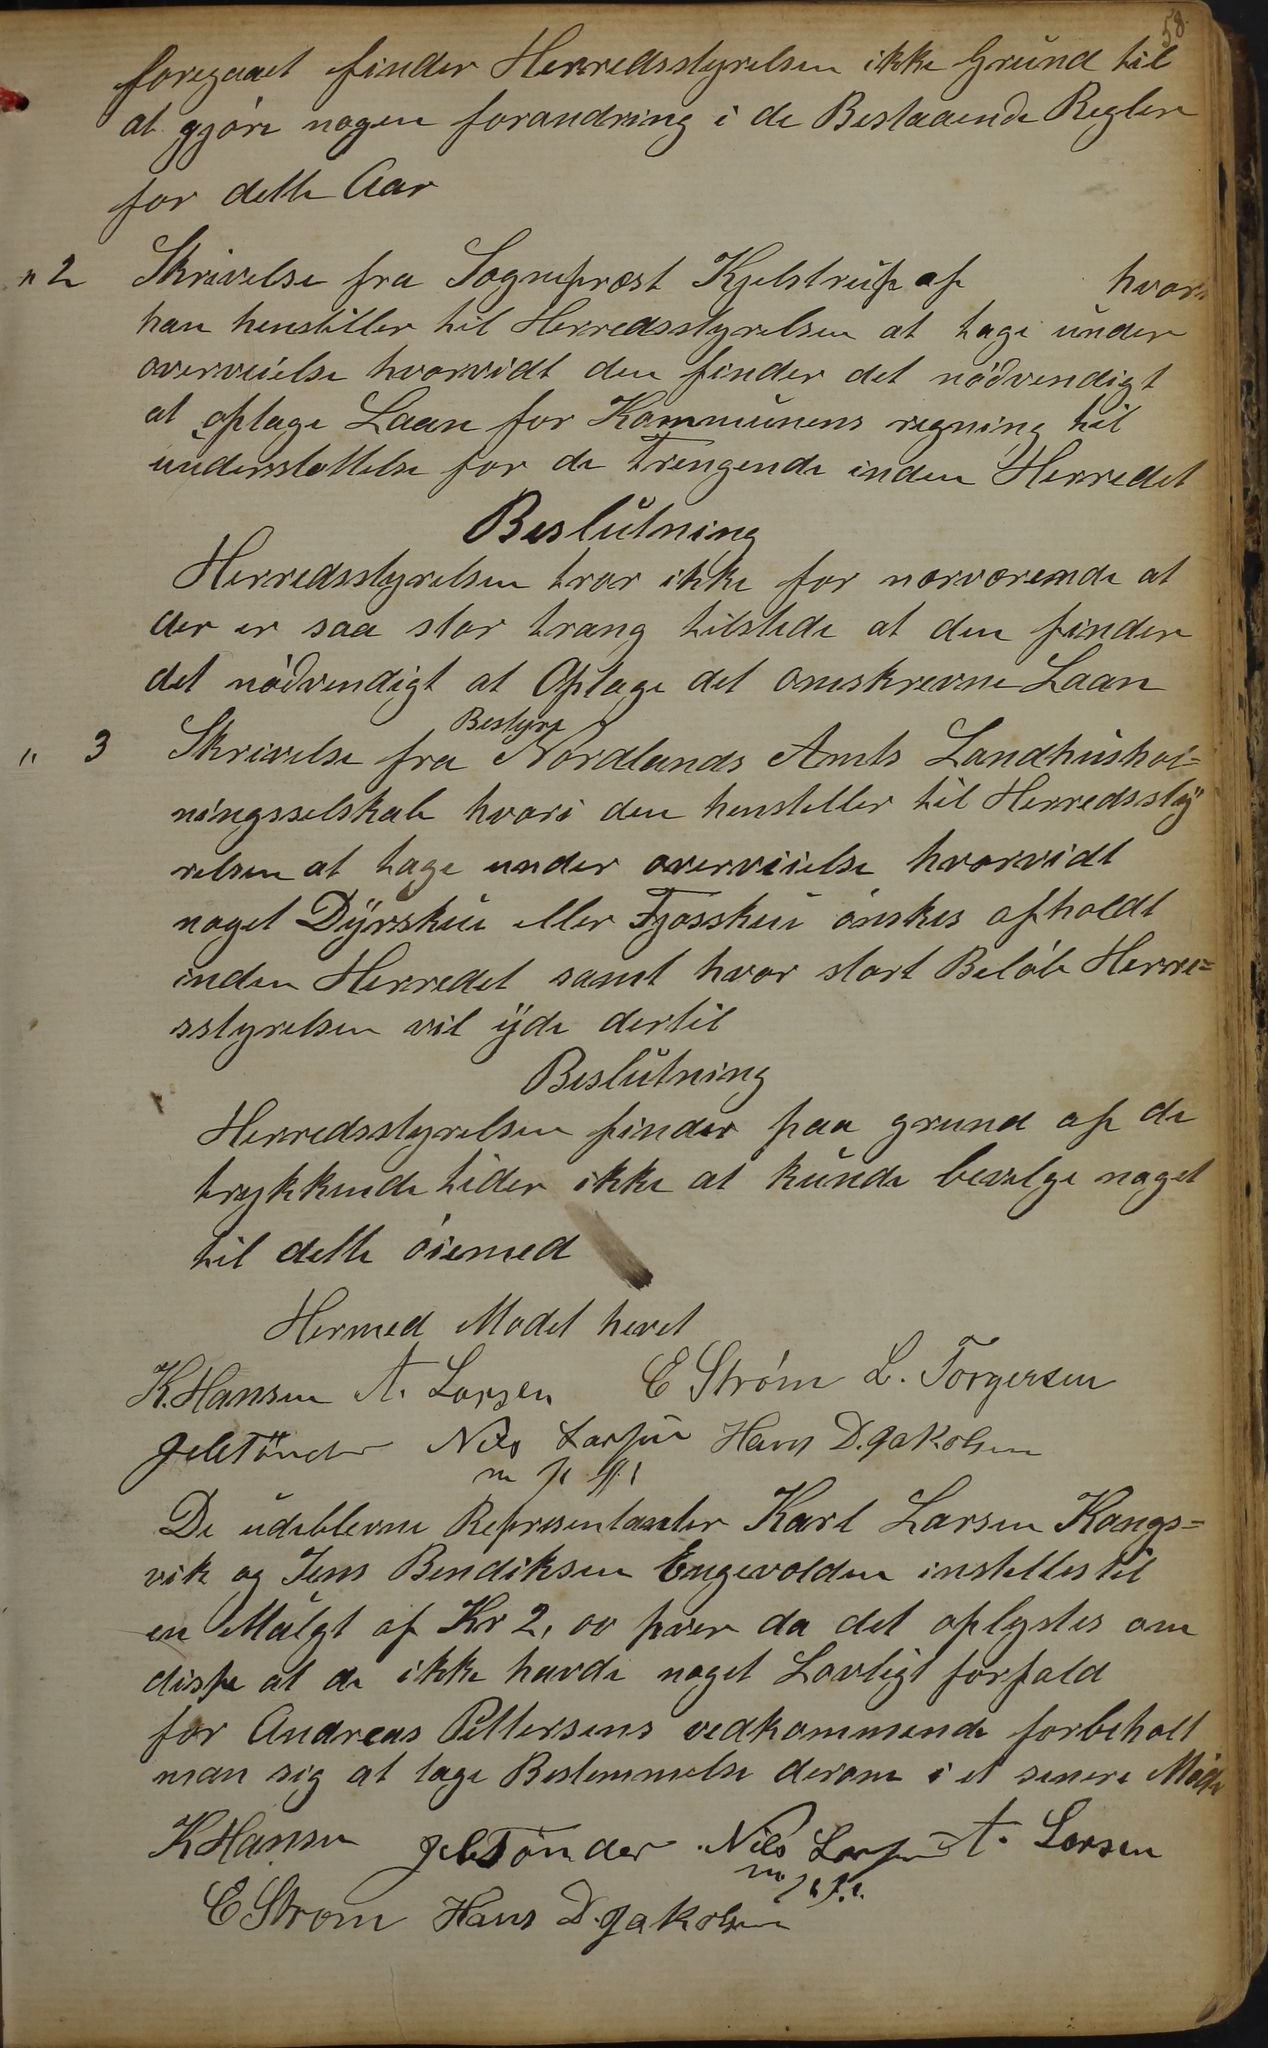 58
foregaaet finder Herredsstyrelsen ikke Grund til
at gjøre nogen forandring i de Bestaaende Regler
for dette Aar
" 2 Skrivelse fra Sognepræst Kjelstrup af hvori
han henstiller til Herredsstyrelsen at tage under
overveielse hvorvidt den finder det nødvendigt
at optage Laan for Kommunens regning til
understøttelse for de Trengende inden Herredet
Beslutning
Herredsstyrelsen tror ikke for nærværende at
der er saa stor trang tilstede at den finder
det nødvendigt at Optage det omskrevne Laan
Bestyre
" 3 Skrivelse fra Nordlands Amts Landhushol=
ningsselskab hvori den henstiller til Herredssty
relsen at tage under overveielse hvorvidt
noget Dyrskue eller Fjosskue ønskes afholdt
inden Herredet samt hvor stort Beløb Herre=
sstyrelsen vil yde dertil
Beslutning
Herredsstyrelsen finder paa grund af de
trykkende tider ikke at kunde bevelge noget
til dette øiemed
Hermed Modet hevet
K. Hansen A. Larsen E Strøm L. Torgersen
Tönder Nils Larsen Hans D. Jakobsen
m p
De udeblevne Representanter Karl Larsen Kangs=
vik og Jens Bendiksen Engevolden instilles til
en Mulgt af Kr 2,00 hver da det oplystes om
disse at de ikke havde noget Lovligt forfald
for Andreas Pettersens vedkommende forbeholt
man sig at tage Bestemmelse derom i et senere Møde
K Hansen Tönder Nils Larsen A. Larsen
E Strøm Hans D. Jakobsen